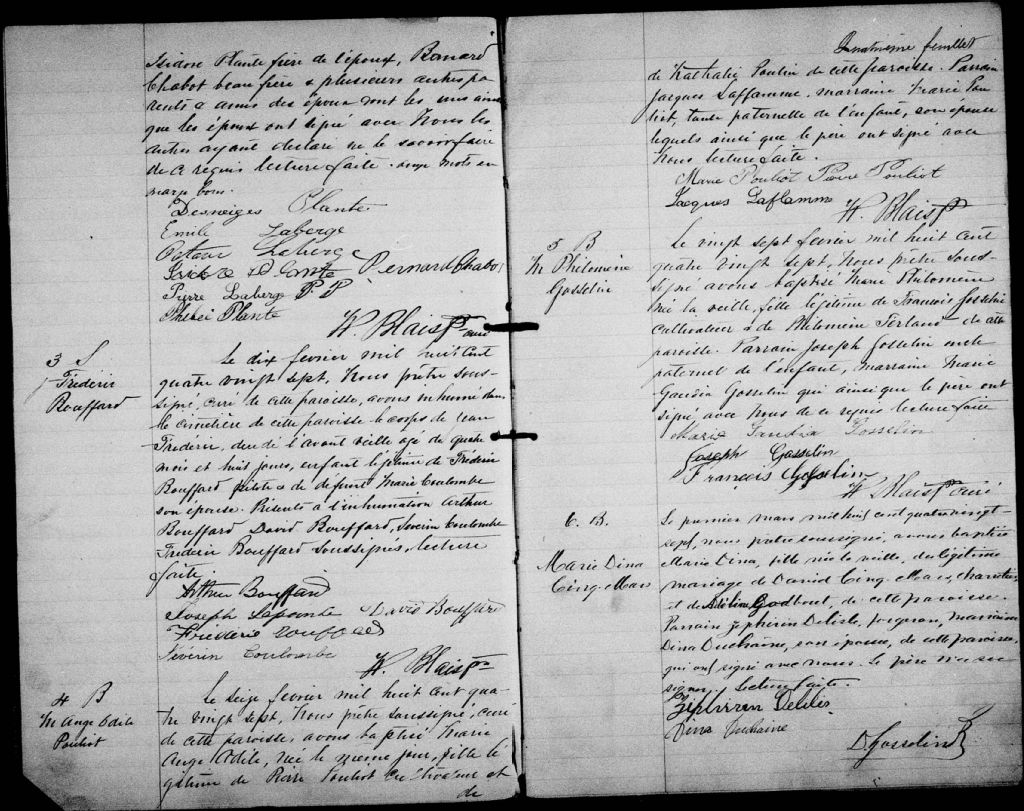 Isidore Plante frère de l'époux, Bernard
Chabot beau frère & plusieurs autres pa
rents & amis des époux dont les uns ainsi
que les époux ont signé avec Nous les
autres ayant déclaré ne le savoir faire
de ce requis lecture faite. mots en
marge bons.
Desneiges Plante
Emile Laberge
Octave Laberge
Bernard Chabot
Pierre Laberge P. P.
Phebée Plante
W. Blais Ptre curé
3 S
Fréderic
Bouffard
Le dix février mil huit cent
quatre vingt sept, Nous prêtre sous-
signé, curé de cette paroisse, avons inhumé dans
le cimetière de cette paroisse le corps de Jean
Fréderic, décédé l'avant veille agé de quatre
mois et huit jours, enfant légitime de Fréderic
Bouffard pilote & de defunte Marie Coulombe
son épouse. Présents à l'inhumation Arthur
Bouffard David Bouffard, Séverin Coulombe
Fréderic Bouffard soussignés, lecture
faite.
Arthur Bouffard
Joseph Lapointe David Bouffard
Frederic Bouffard
Séverin Coulombe
W. Blais Ptre
4 B
M Ange Adile
Pouliot
Le seize février mil huit cent qua-
tre vingt sept, Nous prêtre soussigné, curé
de cette paroisse, avons baptisé Marie
Ange Adile, née le même jour, fille lé
gitime de Pierre Pouliot cultivateur et
de
Quatrième feuillet
de Nathalie Poulin de cette paroisse. Parrain
Jacques Laflamme, marraine Marie Pou
liot, tante paternelle de l'enfant, son épouse
lesquels ainsi que le père ont signé avec
Nous lecture faite.
Marie Pouliot Pierre Pouliot
Jacques Laflamme
W. Blais Ptre
5 B
M Philomène
Gosselin
Le vingt sept février mil huit cent
quatre vingt sept, Nous prêtre sous-
signé avons baptisé Marie Philomène
née la veille, fille légitime de François Gosselin
cultivateur & de Philomène Ferland de cette
paroisse. Parrain Joseph Gosselin oncle
paternel de l'enfant, marraine Marie
Gaudia Gosselin qui ainsi que le père ont
signé avec Nous de ce requis lecture faite
Marie Gaudia Gosselin
Joseph Gosselin
François Gosselin
W Blais Ptre curé
6. B.
Marie Dina
Cinq-Mars
Le premier mars mil huit cent quatre vingt-
sept, nous prêtre soussigné, avons baptisé
Marie Dina, fille née la veille, du légitime
mariage de David Cinq-Mars, charretier,
et de Adeline Godbout, de cette paroisse.
Parrain Zépherin Delisle, forgeron, marraine
Dina Duchaine, son épouse, de cette paroisse,
qui ont signé avec nous. Le père n'a su
signer. Lecture faite.
Zepherin Delisle
Dina Duchaine
D. Gosselin